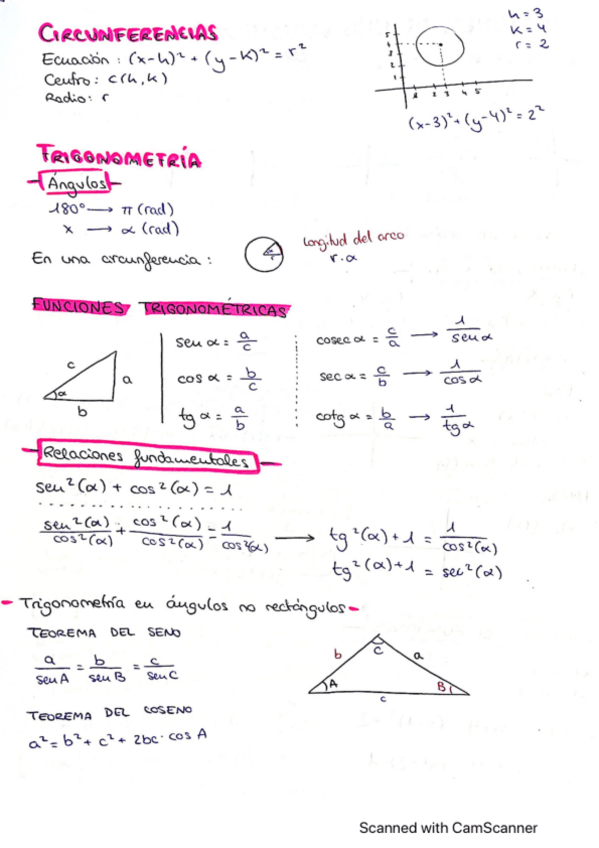 CIRCUNFERENCIAS
Ecuación : (x-h)² + (y-k)² = r²
Centro : c(h,k)
Radio : r
h = 3
k = 4
r = 2
(x-3)² + (y-4)² = 2²
TRIGONOMETRÍA
Ángulos
180° → π (rad)
x → α (rad)
En una circunferencia :
Longitud del arco
r·α
FUNCIONES TRIGONOMÉTRICAS
c
a
α
b
sen α = a/c
cosec α = c/a → 1/sen α
cos α = b/c
sec α = c/b → 1/cos α
tg α = a/b
cotg α = b/a → 1/tg α
Relaciones fundamentales
sen²(α) + cos²(α) = 1
sen²(α)/cos²(α) + cos²(α)/cos²(α) = 1/cos²(α) → tg²(α)+1 = 1/cos²(α)
tg²(α)+1 = sec²(α)
- Trigonometría en ángulos no rectángulos -
TEOREMA DEL SENO
a/sen A = b/sen B = c/sen C
b
C
a
A
B
c
TEOREMA DEL COSENO
a² = b² + c² + 2bc · cos A
Scanned with CamScanner